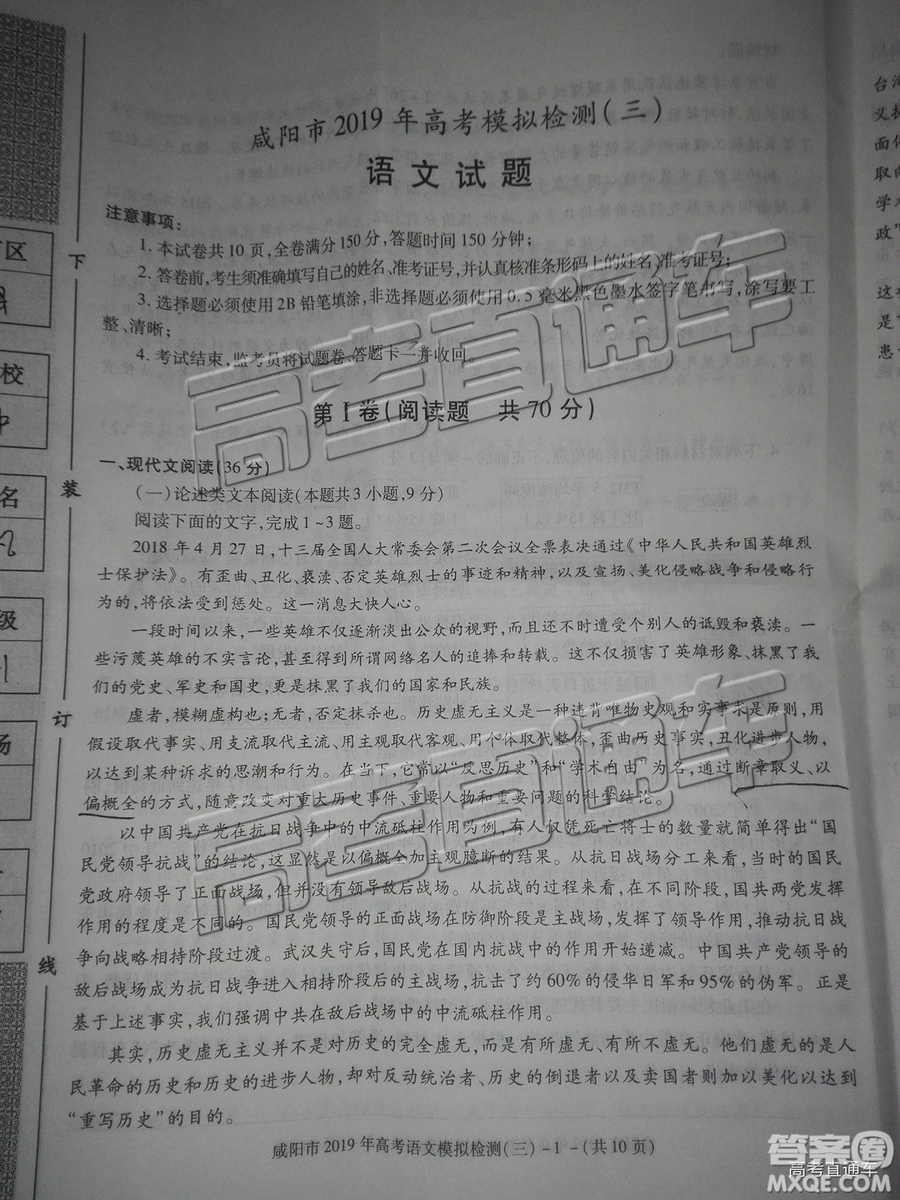 咸阳市2019年高考模拟检测(三)
语文试题
注意事项:
1. 本试卷共10页,全卷满分150分,答题时间150分钟;
2. 答卷前,考生须准确填写自己的姓名、准考证号,并认真核准条形码上的姓名、准考证号;
3. 选择题必须使用2B铅笔填涂,非选择题必须使用0.5毫米黑色墨水签字笔书写,涂写要工
整、清晰;
4. 考试结束,监考员将试题卷、答题卡一并收回。
第Ⅰ卷(阅读题 共70分)
一、现代文阅读(36分)
(一)论述类文本阅读(本题共3小题,9分)
阅读下面的文字,完成1~3题。
2018年4月27日,十三届全国人大常委会第二次会议全票表决通过《中华人民共和国英雄烈
士保护法》。有歪曲、丑化、亵渎、否定英雄烈士的事迹和精神,以及宣扬、美化侵略战争和侵略行
为的,将依法受到惩处。这一消息大快人心。
一段时间以来,一些英雄不仅逐渐淡出公众的视野,而且还不时遭受个别人的诋毁和亵渎。一
些污蔑英雄的不实言论,甚至得到所谓网络名人的追捧和转载。这不仅损害了英雄形象、抹黑了我
们的党史、军史和国史,更是抹黑了我们的国家和民族。
虚者,模糊虚构也;无者,否定抹杀也。历史虚无主义是一种违背唯物史观和实事求是原则,用
假设取代事实、用支流取代主流、用主观取代客观、用个体取代整体,歪曲历史事实,丑化进步人物,
以达到某种诉求的思潮和行为。在当下,它常以“反思历史”和“学术自由”为名,通过断章取义、以
偏概全的方式,随意改变对重大历史事件、重要人物和重要问题的科学结论。
以中国共产党在抗日战争中的中流砥柱作用为例,有人仅凭死亡将士的数量就简单得出“国
民党领导抗战”的结论,这显然是以偏概全加主观臆断的结果。从抗日战场分工来看,当时的国民
党政府领导了正面战场,但并没有领导敌后战场。从抗战的过程来看,在不同阶段,国共两党发挥
作用的程度是不同的。国民党领导的正面战场在防御阶段是主战场,发挥了领导作用,推动抗日战
争向战略相持阶段过渡。武汉失守后,国民党在国内抗战中的作用开始递减。中国共产党领导的
敌后战场成为抗日战争进入相持阶段的主战场,抗击了约60%的侵华日军和95%的伪军。正是
基于上述事实,我们强调中共在抗日战争中的中流砥柱作用。
其实,历史虚无主义并不是对历史的完全虚无,而是有所虚无、有所不虚无。他们虚无的是人
民革命的历史和历史的进步人物,却对反动统治者、历史的倒退者以及卖国者则加以美化以达到
“重写历史”的目的。
咸阳市2019年高考语文模拟检测(三)-1-(共10页)
区
校
名
级
场
下
装
订
线
台湾
面
取向
学术
政”
这
是
患
高考直通车
高考直通车
高考直通车
答案卷
高考直通车
MXQE.COM